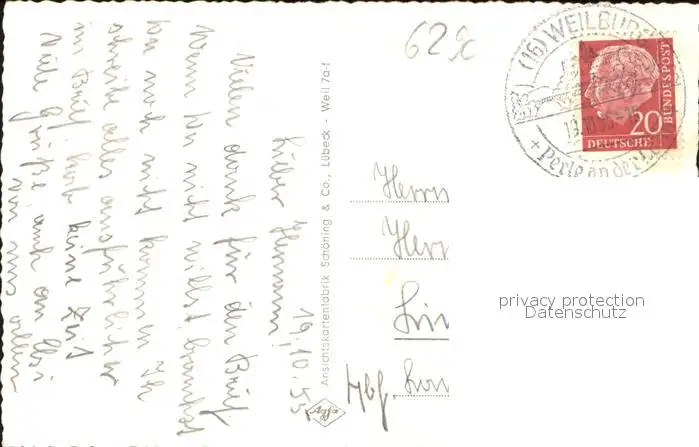 19.10.55
Lieber Hermann!
Vielen Dank für den Brief
Wenn du nicht willst brauchst
du noch nicht kommen. Ich
schreibe alles ausführlicher
im Brief, hab keine Zeit
Viele Grüße, auch an
von uns allen
Ansichtskartenfabrik Schöning & Co., Lübeck - Weil 7a-f
Agfa
62
(16) WEILBURG
+ Perle an der
20
DEUTSCHE
BUNDESPOST
Herrn
privacy protection
Datenschutz
Hbf.